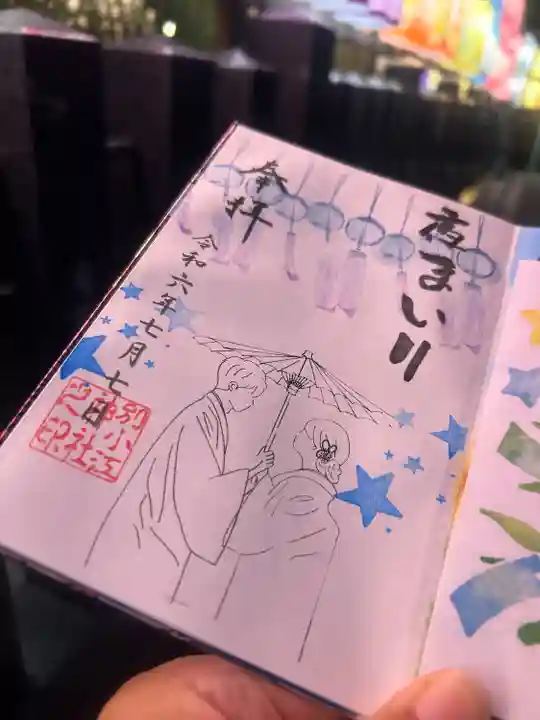 夜まいり
奉拝
令和六年七月七日
別小江
神社
之印